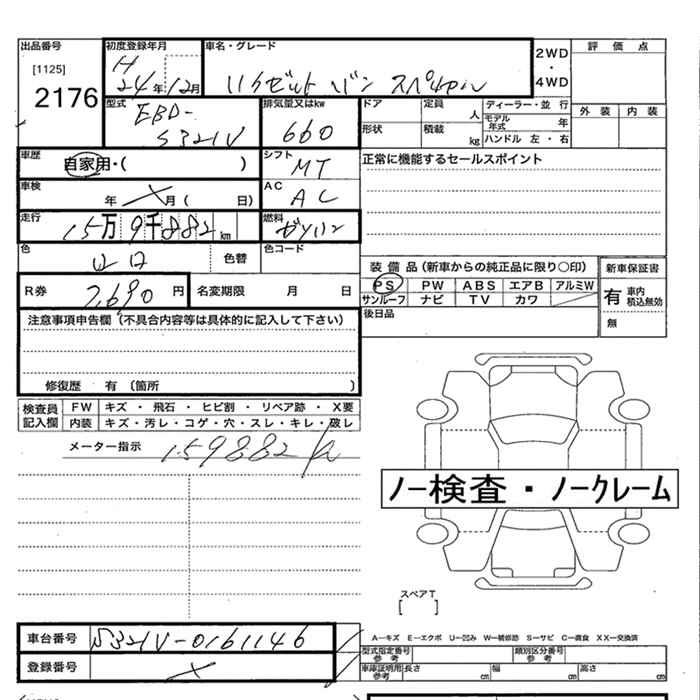 出品番号 初度登録年月 車名・グレード 2WD・4WD 評価点
[1125] H
2176 24年12月 ハイゼットバン スペシャル
型式 EBD-S321V 排気量又はkw 660 ドア 定員 人 ディーラー・並 行 外装 内装
形状 積載 kg モデル年式 年 ハンドル 左・右
車歴 自家用・( ) シフト MT 正常に機能するセールスポイント
車検 年 月( 日) AC AC
走行 15万9千882km 燃料 ガソリン
色 シロ 色替 色コード 装備品(新車からの純正品に限り○印) 新車保証書
R券 7,690円 名変期限 月 日 PS PW ABS エアB アルミW 有 車内積込無効
サンルーフ ナビ TV カワ
注意事項申告欄(不具合内容等は具体的に記入して下さい) 後日品 無
修復歴 有 (箇所 )
検査員記入欄 FW キズ・飛石・ヒビ割・リペア跡・X要
内装 キズ・汚レ・コゲ・穴・スレ・キレ・破レ
メーター指示 159882k
ノー検査・ノークレーム
スペアT
[ ]
A―キズ E―エクボ U―凹み W―補修跡 S―サビ C―腐食 XX―交換済
車台番号 S321V-0161146 型式指定番号 参考 類別区分番号 参考
登録番号 車庫証明用 参考 長さ cm 幅 cm 高さ cm